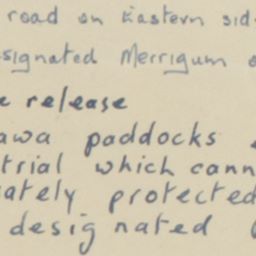 road on Eastern sid
signated Merrigum
e release
awa paddocks
trial which cann
ately protected
designated